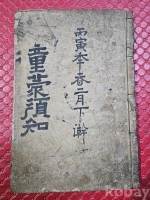 丙寅本春二月下澣
童蒙須知
Kobay